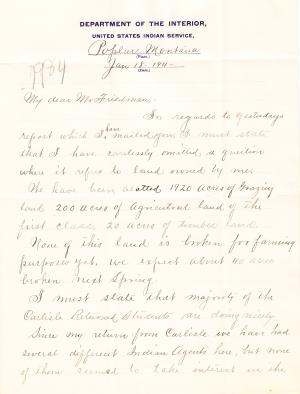 DEPARTMENT OF THE INTERIOR,
UNITED STATES INDIAN SERVICE,
Poplar, Montana
(Place.)
Jan 18 - 1911 -
(Date.)
My dear Mr. Friedman:
In regards to yesterdays
report which I have mailed you I must state
that I have carelessly omitted a question
where it refers to land owned by me.
We have been alotted 1920 acres of Grazing
land 200 acres of Agricultural land of the
first class, 20 acres of Timber land.
None of this land is broken for farming
purposes yet. We expect about 40 acres
broken next Spring.
I must state that majority of the
Carlisle Returned Students are doing nicely
Since my return from Carlisle we have had
several different Indian Agents here, but none
of them seemed to take interest in the